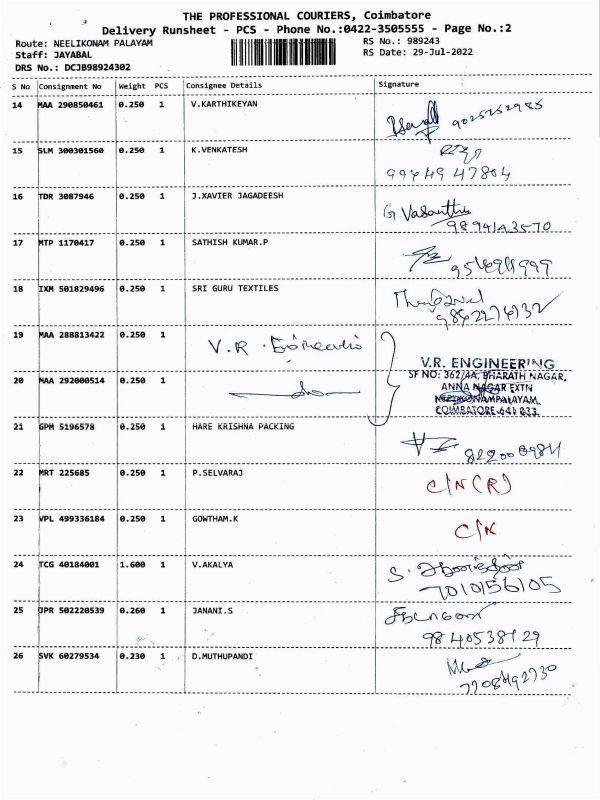 THE PROFESSIONAL COURIERS, Coimbatore
Delivery Runsheet - PCS - Phone No.:0422-3505555 - Page No.:2
Route: NEELIKONAM PALAYAM RS No.: 989243
Staff: JAYABAL RS Date: 29-Jul-2022
DRS No.: DCJB98924302
S No Consignment No Weight PCS Consignee Details Signature
14 MAA 290850461 0.250 1 V.KARTHIKEYAN
15 SLM 300301560 0.250 1 K.VENKATESH
99949 47804
16 TDR 3087946 0.250 1 J.XAVIER JAGADEESH G Vasantha
17 MTP 1170417 0.250 1 SATHISH KUMAR.P
18 IXM 501829496 0.250 1 SRI GURU TEXTILES
19 MAA 288813422 0.250 1 V.R.
V.R. ENGINEERING
SF NO: 362/4A, BHARATH NAGAR,
20 MAA 292000514 0.250 1 ANNA NAGAR EXTN
NEELIKONAMPALAYAM,
COIMBATORE-641 033.
21 GPM 5196578 0.250 1 HARE KRISHNA PACKING
22 MRT 225685 0.250 1 P.SELVARAJ C/N (R)
23 VPL 499336184 0.250 1 GOWTHAM.K C/N
24 TCG 40184001 1.600 1 V.AKALYA S.
7010156105
25 JPR 502220539 0.260 1 JANANI.S
9840538129
26 SVK 60279534 0.230 1 D.MUTHUPANDI